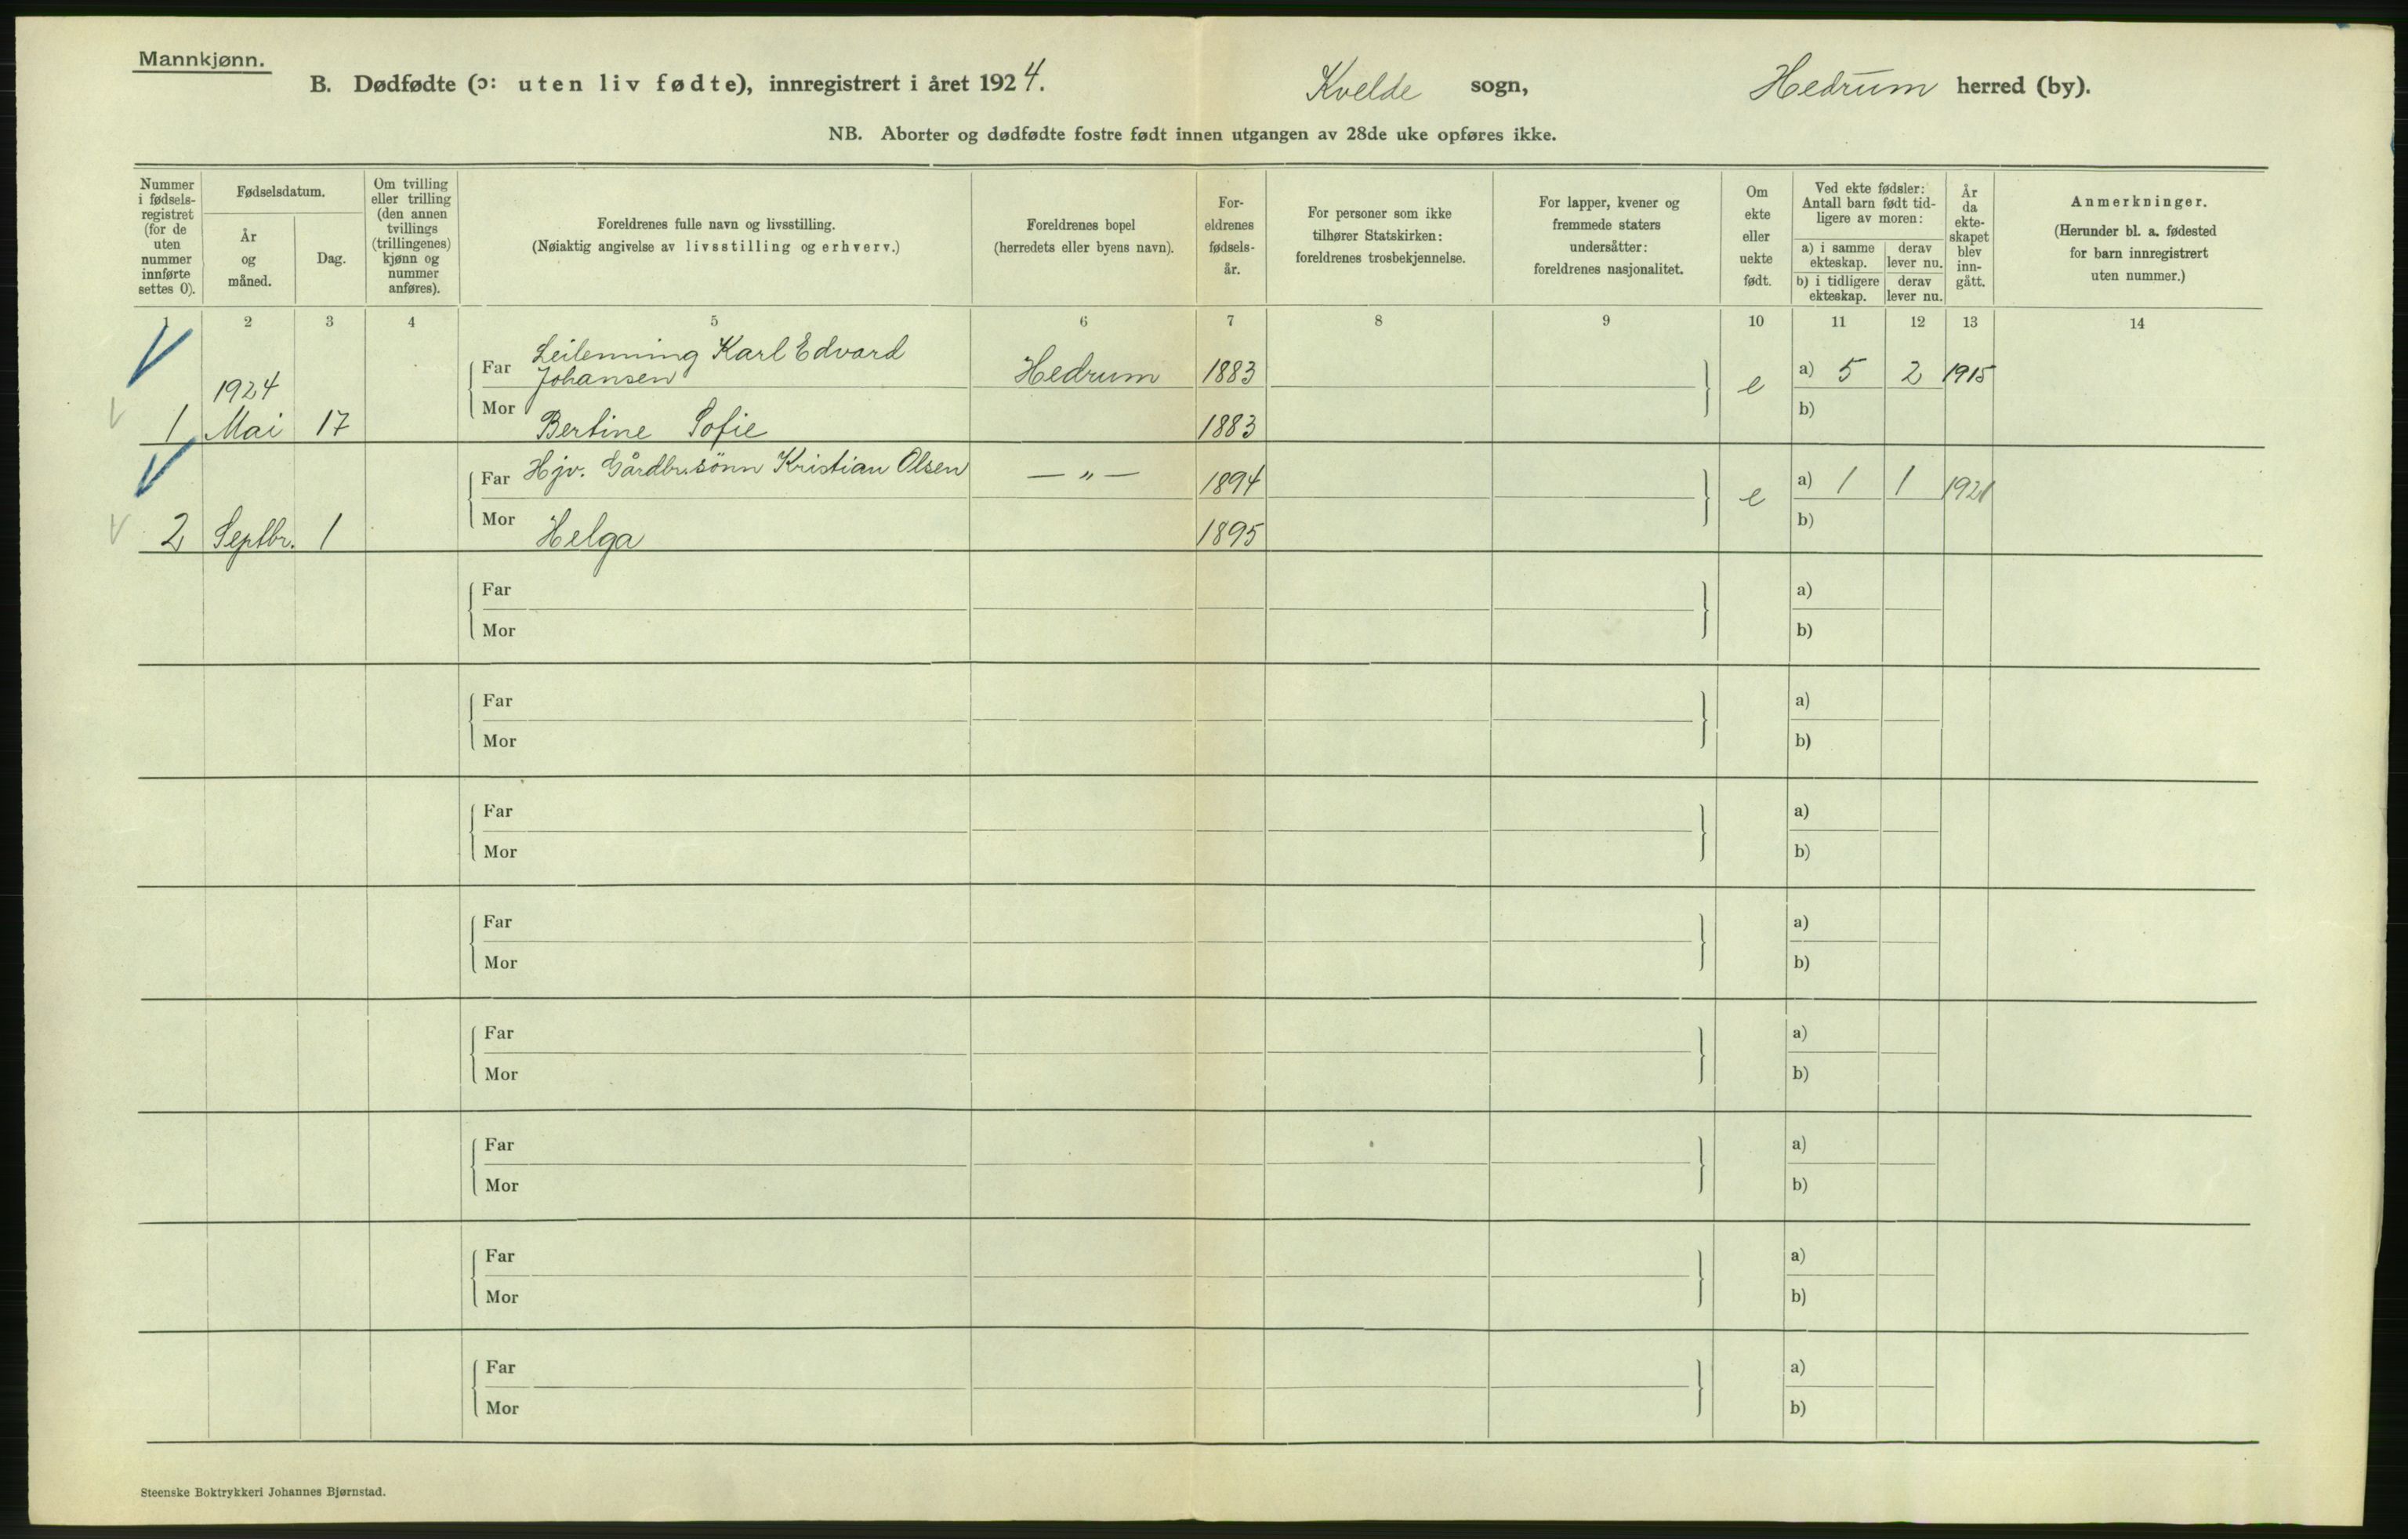 Mannkjønn.
B. Dødfødte (ɔ: uten liv fødte), innregistrert i året 1924. Kvelde sogn, Hedrum herred (by).
NB. Aborter og dødfødte fostre født innen utgangen av 28de uke opføres ikke.
Nummer
i fødsels-
registret
(for de
uten
nummer
innførte
settes 0).
Fødselsdatum.
År
og
måned.
Dag.
Om tvilling
eller trilling
(den annen
tvillings
(trillingenes)
kjønn og
nummer
anføres).
Foreldrenes fulle navn og livsstilling.
(Nøiaktig angivelse av livsstilling og erhverv.)
Foreldrenes bopel
(herredets eller byens navn).
For-
eldrenes
fødsels-
år.
For personer som ikke
tilhører Statskirken:
foreldrenes trosbekjennelse.
For lapper, kvener og
fremmede staters
undersåtter:
foreldrenes nasjonalitet.
Om
ekte
eller
uekte
født.
Ved ekte fødsler:
Antall barn født tid-
ligere av moren:
a) i samme
ekteskap.
derav
lever nu.
b) i tidligere
ekteskap.
derav
lever nu.
År
da
ekte-
skapet
blev
inn-
gått.
Anmerkninger.
(Herunder bl. a. fødested
for barn innregistrert
uten nummer.)
1 2 3 4 5 6 7 8 9 10 11 12 13 14
Leilenning Karl Edvard
Far Johansen Hedrum 1883 e a) 5 2 1915
1924
Mor b)
1 Mai 17 Bertine Sofie 1883
Far Hjv. Gårdbr.sönn Kristian Olsen — „ — 1894 e a) 1 1 1921
Mor b)
2 Septbr. 1 Helga 1895
Far a)
Mor b)
Far a)
Mor b)
Far a)
Mor b)
Far a)
Mor b)
Far a)
Mor b)
Far a)
Mor b)
Far a)
Mor b)
Far a)
Mor b)
Steenske Boktrykkeri Johannes Bjørnstad.